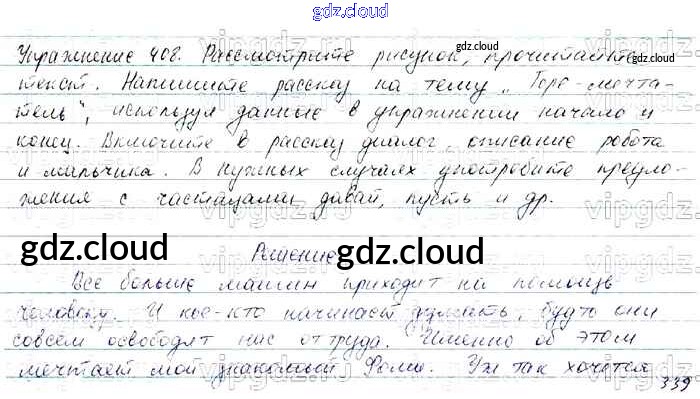 gdz.cloud
Упражнение 408. Рассмотрите рисунок, прочитайте
gdz.cloud
gdz.cloud
текст. Напишите рассказ на тему „Горе-мечта-
тель", используя данные в упражнении начало и
конец. Включите в рассказ диалог, описание робота
и мальчика. В нужных случаях употребите предло-
жения с частицами давай, пусть и др.
gdz.cloud
Решение
gdz.cloud
Все больше машин приходит на помощь
человеку. И кое-кто начинает думать, будто они
совсем освободят нас от труда. Именно об этом
мечтает мой знакомый Фома. Уж так хочется
339